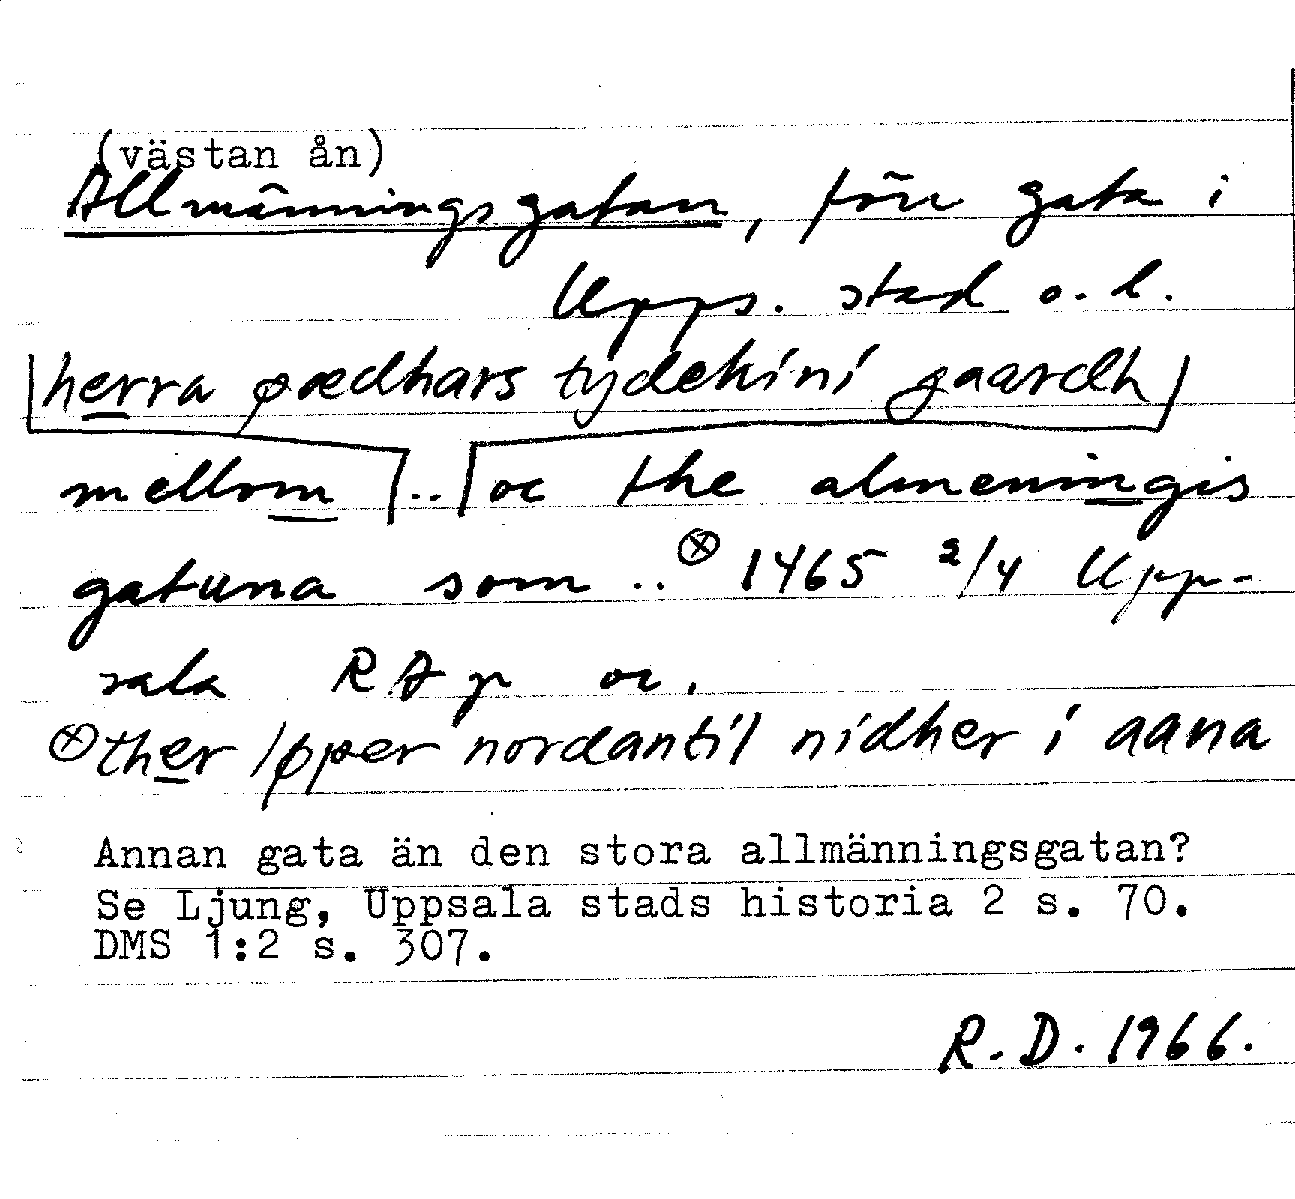 (västan ån)
Allmänningsgatan, förr gata i
Upps. stad o. l.
herra pædhars tydekini gaardh
mellom .. oc the almenningis
gatuna som .. ⊗ 1465 2/4 Upp-
sala RA p or.
⊗ ther løper nordantil nidher i aana
Annan gata än den stora allmänningsgatan?
Se Ljung, Uppsala stads historia 2 s. 70.
DMS 1:2 s. 307.
R. D. 1966.